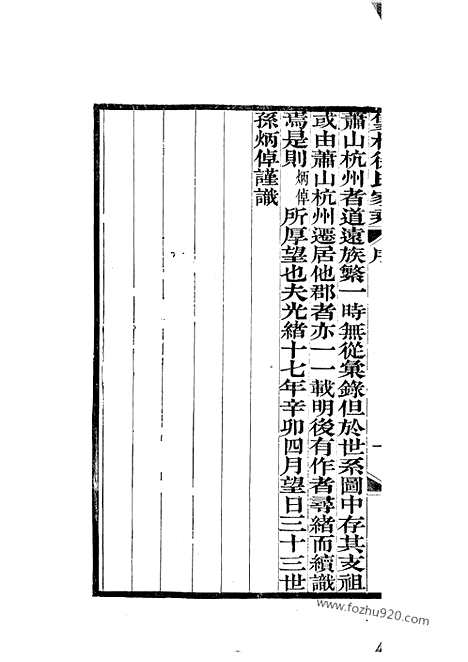 蕭山杭州者道遠族繁一時無從彙錄但於世系圖中存其支祖
或由蕭山杭州遷居他郡者亦一一載明後有作者尋緒而續識
焉是則炳倬所厚望也夫光緒十七年辛卯四月望日三十三世
孫炳倬謹識
www.fozhu920.com